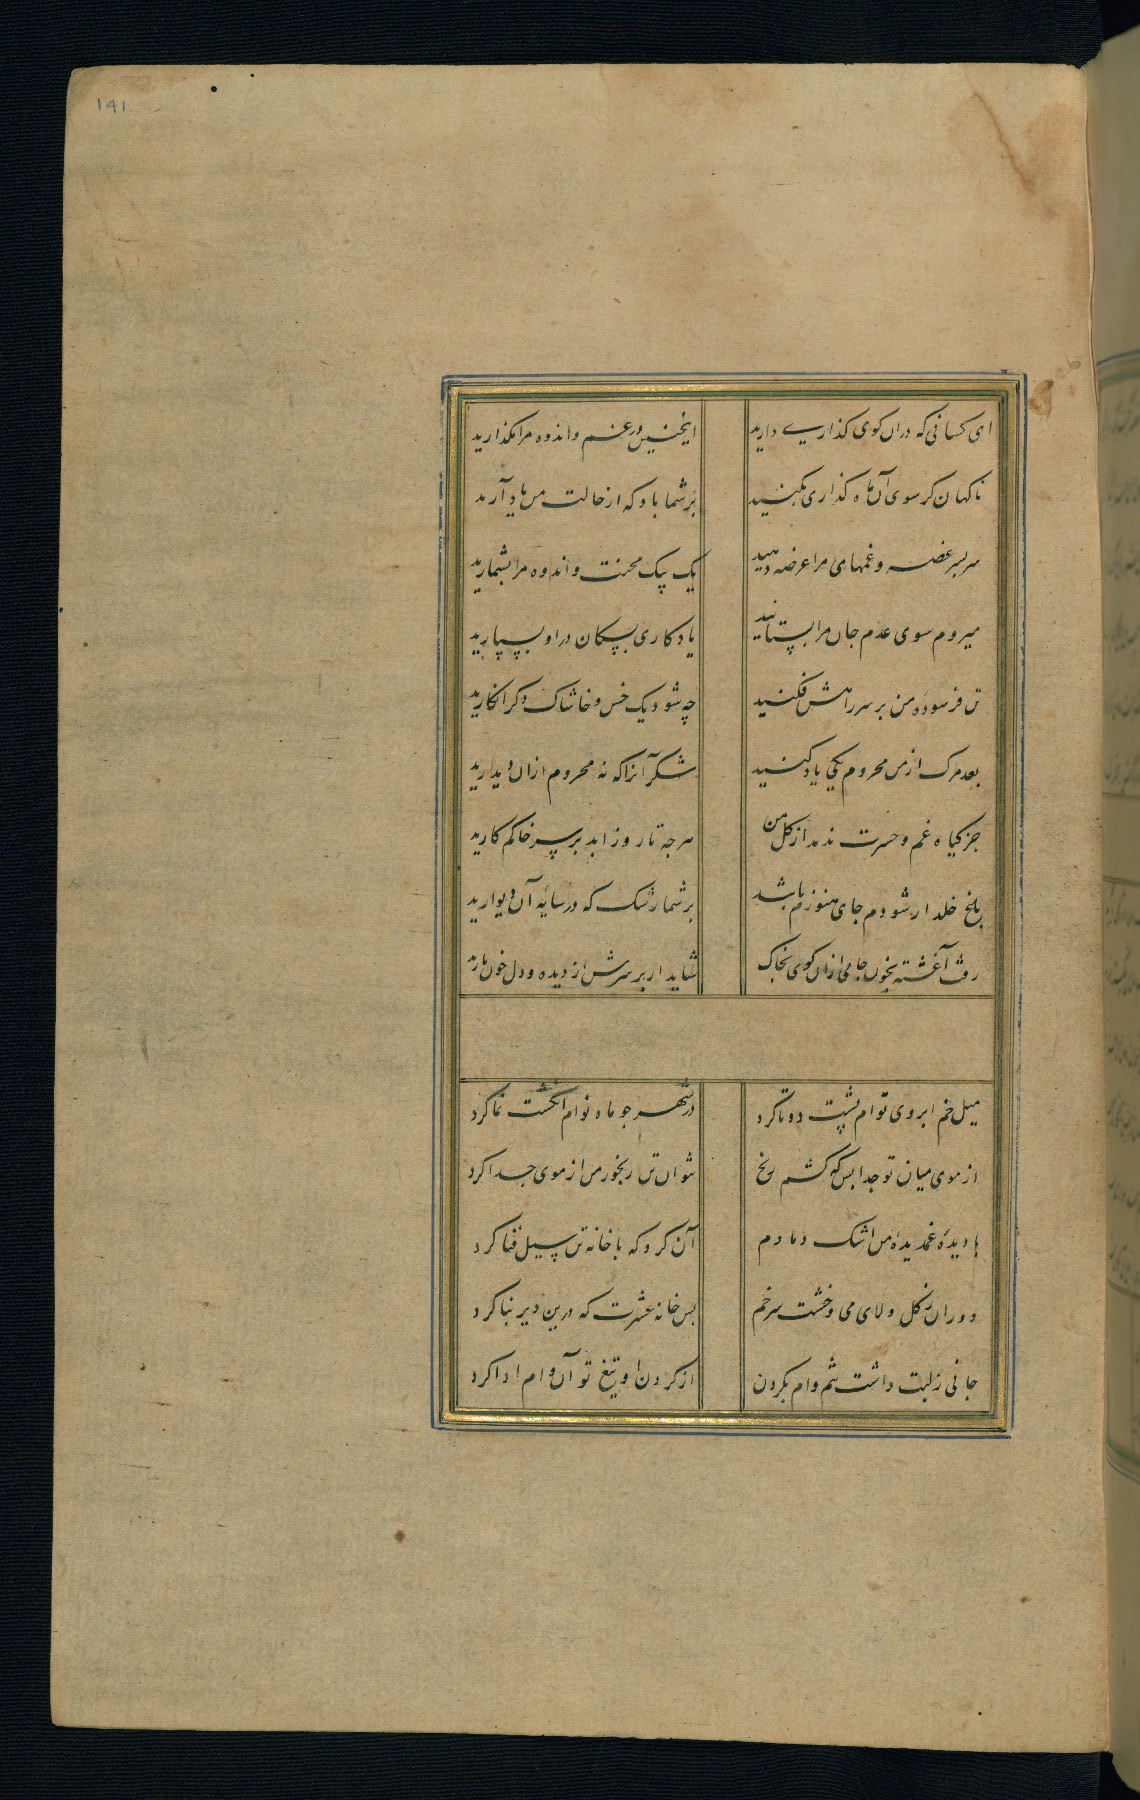 ۱۴۱
ای کسانی که دران کوی کذاری دارید اینچنین در غم و اندوه مرا مکذارید
ناکهان کر سوی آن ماه کذاری بکنید بر شما باد که از حالت من یاد آرید
سر بسر غصه و غمهای مرا عرضه دهید یک بیک محنت و اندوه مرا بشمارید
میروم سوی عدم جان مرا بستانید یادکاری بسکان در او بسپارید
تن فرسوده من بر سر راهش فکنید چه شود یک خس و خاشاک دکر انکارید
بعد مرک از من محروم یکی یاد کنید شکر آنرا که نه محروم ازان دیدارید
جز کیاه غم و حسرت ندمد از کل من هر چه تا روز ابد بر سر خاکم کارید
باغ خلد ار شودم جای هنوزم باشد بر شما رشک که در سایه آن دیوارید
رفت آغشته بخون جامی ازان کوی بخاک شاید ار بر سرش از دیده و دل خون بارید
میل خم ابروی توام پشت دوتا کرد در شهر چو ماه نوام انکشت نما کرد
از موی میان تو جدا بس که کشم رنج نتوان تن رنجور من از موی جدا کرد
با دیده غمدیده من اشک دمادم آن کرد که با خانه تن سیل فنا کرد
دوران ز کل و لای می و خشت سر خم بس خانه عشرت که درین دیر بنا کرد
جانی ز لبت داشت ستم وام بکردن از کردن او تیغ تو آن وام ادا کرد